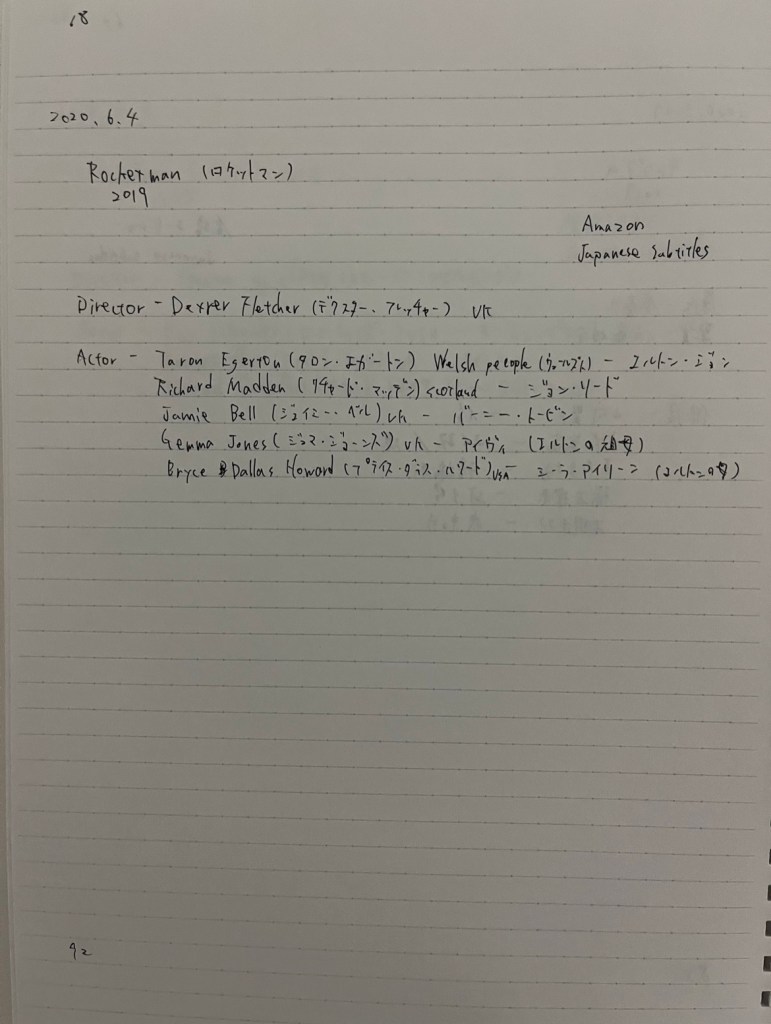 18
2020.6.4
Rocketman (ロケットマン)
2019
Amazon
Japanese subtitles
Director - Dexter Fletcher (デクスター・フレッチャー) UK
Actor - Taron Egerton (タロン・エガートン) Welsh pecople (ウェールズ人) - エルトン・ジョン
Richard Madden (リチャード・マッデン) scotland - ジョン・リード
Jamie Bell (ジェイミー・ベル) UK - バーニー・トーピン
Gemma Jones (ジェマ・ジョーンズ) UK - アイヴィ (エルトンの祖母)
Bryce Dallas Howard (ブライス・ダラス・ハワード) USA - シーラ・アイリーン (エルトンの母)
92